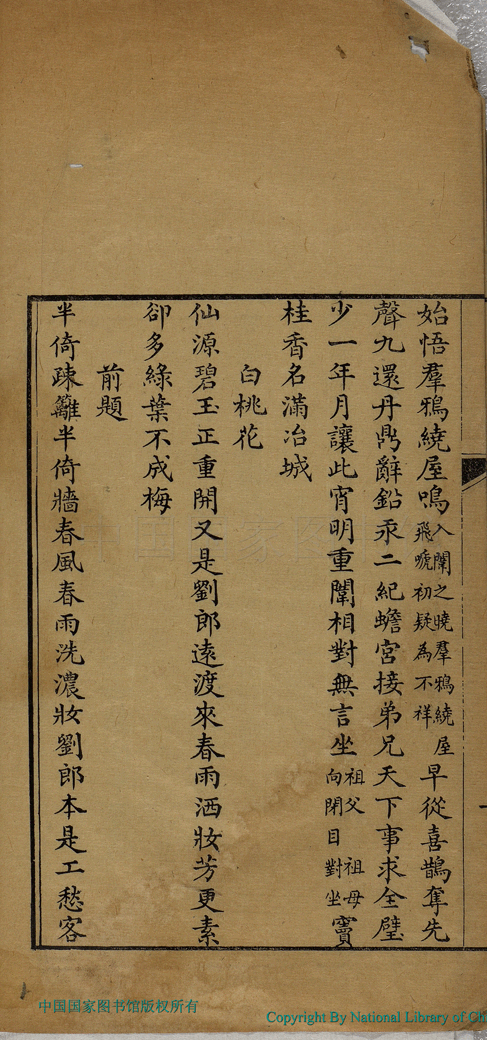 始悟羣鴉繞屋鳴入闈之曉羣鴉繞屋飛唬初疑為不祥早從喜鵲奪先
聲九還丹鼎辭鉛汞二紀蟾宮接弟兄天下事求全璧
少一年月讓此宵明重闈相對無言坐祖父祖母向閉目對坐竇
桂香名滿冶城
白桃花
仙源碧玉正重開又是劉郎遠渡來春雨洒妝芳更素
卻多綠葉不成梅
前題
半倚疎籬半倚牆春風春雨洗濃妝劉郎本是工愁客
中国国家图书馆版权所有
Copyright By National Library of